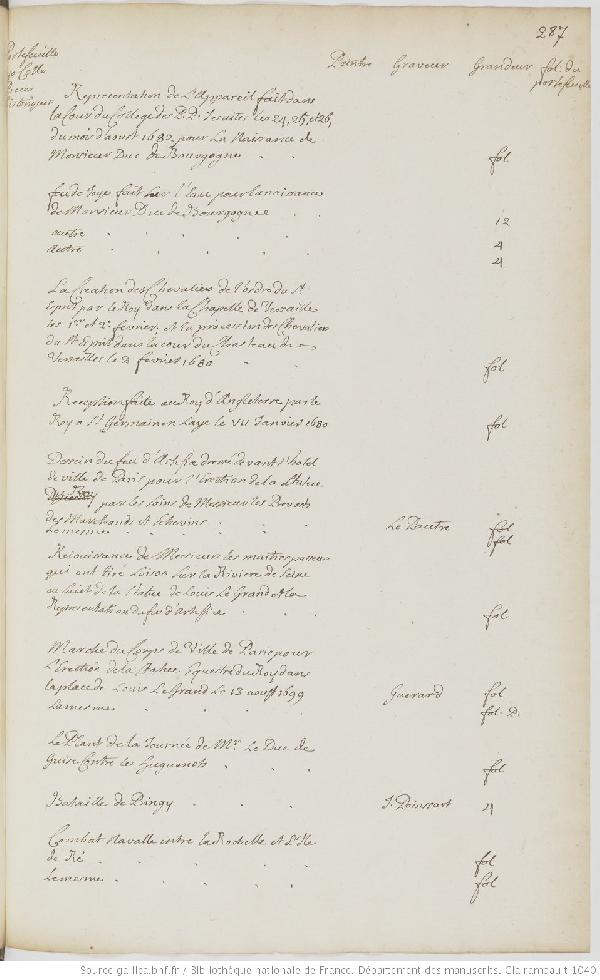 287
Peintre Graveur Grandeur fol. du
portefeuille
Representation de L'Appareil fait dans
la Cour du College des P.P. Jesuites les 24, 25, et 26,
du mois d'aoust 1682 pour La Naissance de
Monsieur Duc de Bourgogne . fol.
feu de Joye fait sur l'Eau pour la naissance
de Monsieur Duc de Bourgogne . . 12
autre . . . . . 4
autre . . . . . 4
La Creation des Chevaliers de l'ordre du St
Esprit par le Roy dans la Chapelle de Versaille
les 1er et 2e fevrier, et la procession des Chevalier
du St Esprit dans la cour du Chasteau de
Versailles le 2 fevrier 1680 . . fol
Reception faite au Roy d'Angleterre par le
Roy a St Germain en Laye le VII Janvier 1680 fol
Dessein du feu d'Artifice dressé devant l'hotel
de ville de Paris pour l'Erection de la Statue
par les soins de Messieurs les Prevots
des Marchands et Echevins . . Le Pautre fol
Le mesme . . . . . fol
Rejouissance de Messieurs les maitres
qui ont tiré Loison sur la Riviere de Seine
au sujet de la Statue de Louis Le Grand et la
Representation du feu d'Artifice . . fol
Marche du Corps de Ville de Paris pour
L'Erection de la Statue Equestre du Roy dans
la place de Louis Le Grand Le 13 aoust 1699 Guerard fol
Le mesme . . . . fol. D.
Le Plant de la Journée de Mr. Le Duc de
Guise Contre les Huguenots . . fol
Bataille de . . . J. Poinssart 4
Combat Navalle entre la Rochelle et L'Ile
de Ré . . . . . fol
Le mesme . . . . . fol
Source gallica.bnf.fr / Bibliothèque nationale de France. Département des manuscrits. Clairambault 1040